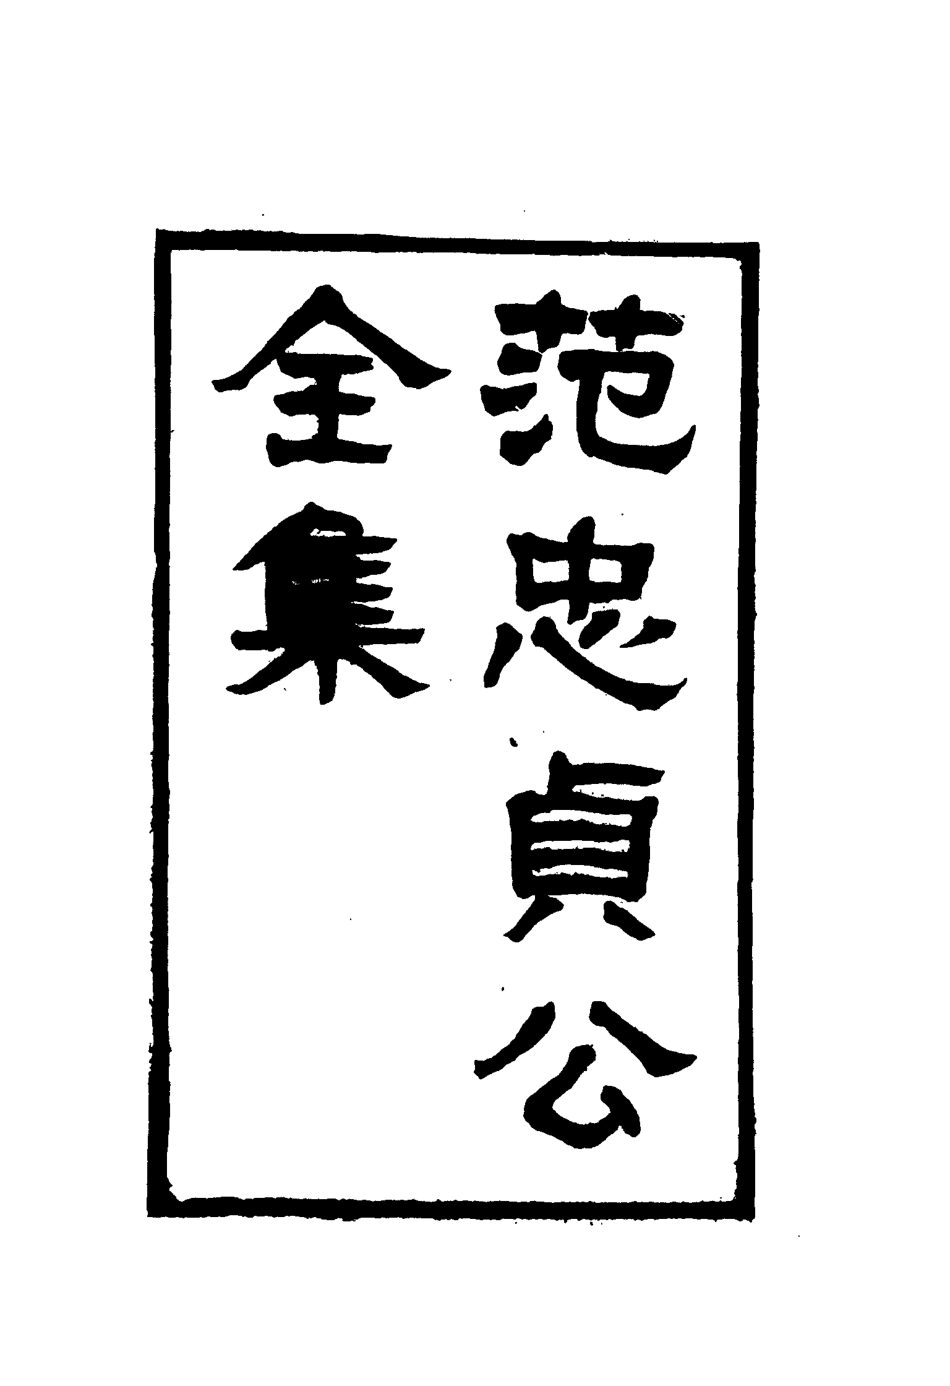 范忠貞公
全集